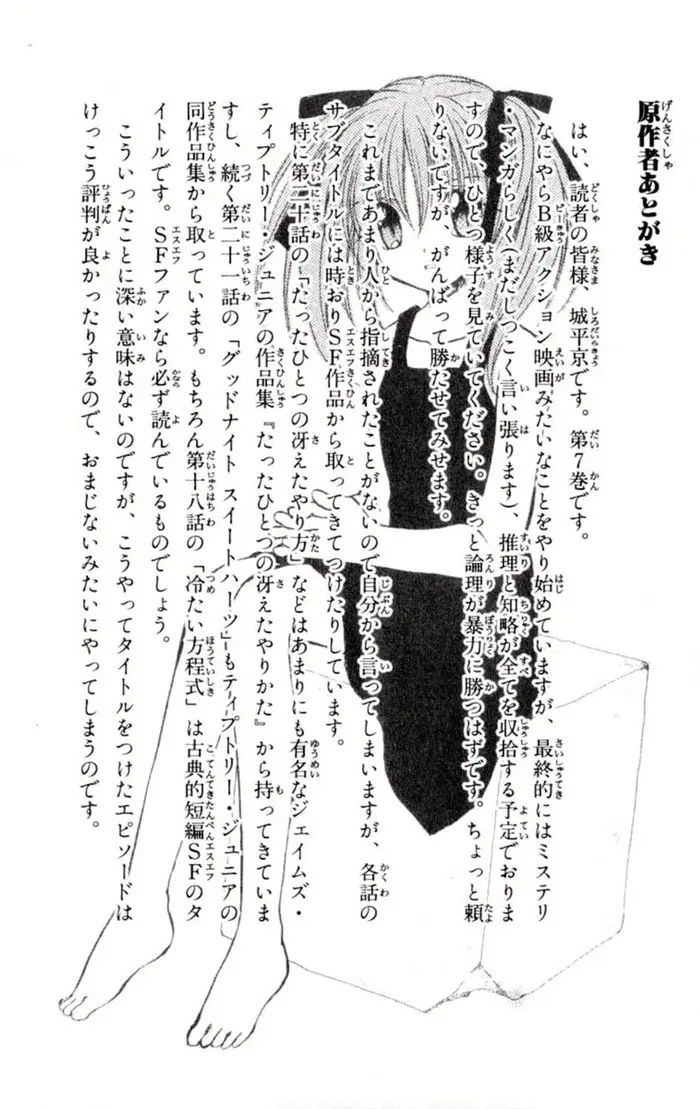 原作者あとがき
はい、読者の皆様、城平京です。第7巻です。
なにやらB級アクション映画みたいなことをやり始めていますが、最終的にはミステリ
・マンガらしく(まだしつこく言い張ります)、推理と知略が全てを収拾する予定でおりま
すので、ひとつ様子を見ていてください。きっと論理が暴力に勝つはずです。ちょっと頼
りないですが、がんばって勝たせてみせます。
これまであまり人から指摘されたことがないので自分から言ってしまいますが、各話の
サブタイトルには時おりSF作品から取ってきてつけたりしています。
特に第二十話の「たったひとつの冴えたやり方」などはあまりにも有名なジェイムズ・
ティプトリー・ジュニアの作品集『たったひとつの冴えたやりかた』から持ってきていま
すし、続く第二十一話の「グッドナイト スイートハーツ」もティプトリー・ジュニアの
同作品集から取っています。もちろん第十八話の「冷たい方程式」は古典的短編SFのタ
イトルです。SFファンなら必ず読んでいるものでしょう。
こういったことに深い意味はないのですが、こうやってタイトルをつけたエピソードは
けっこう評判が良かったりするので、おまじないみたいにやってしまうのです。